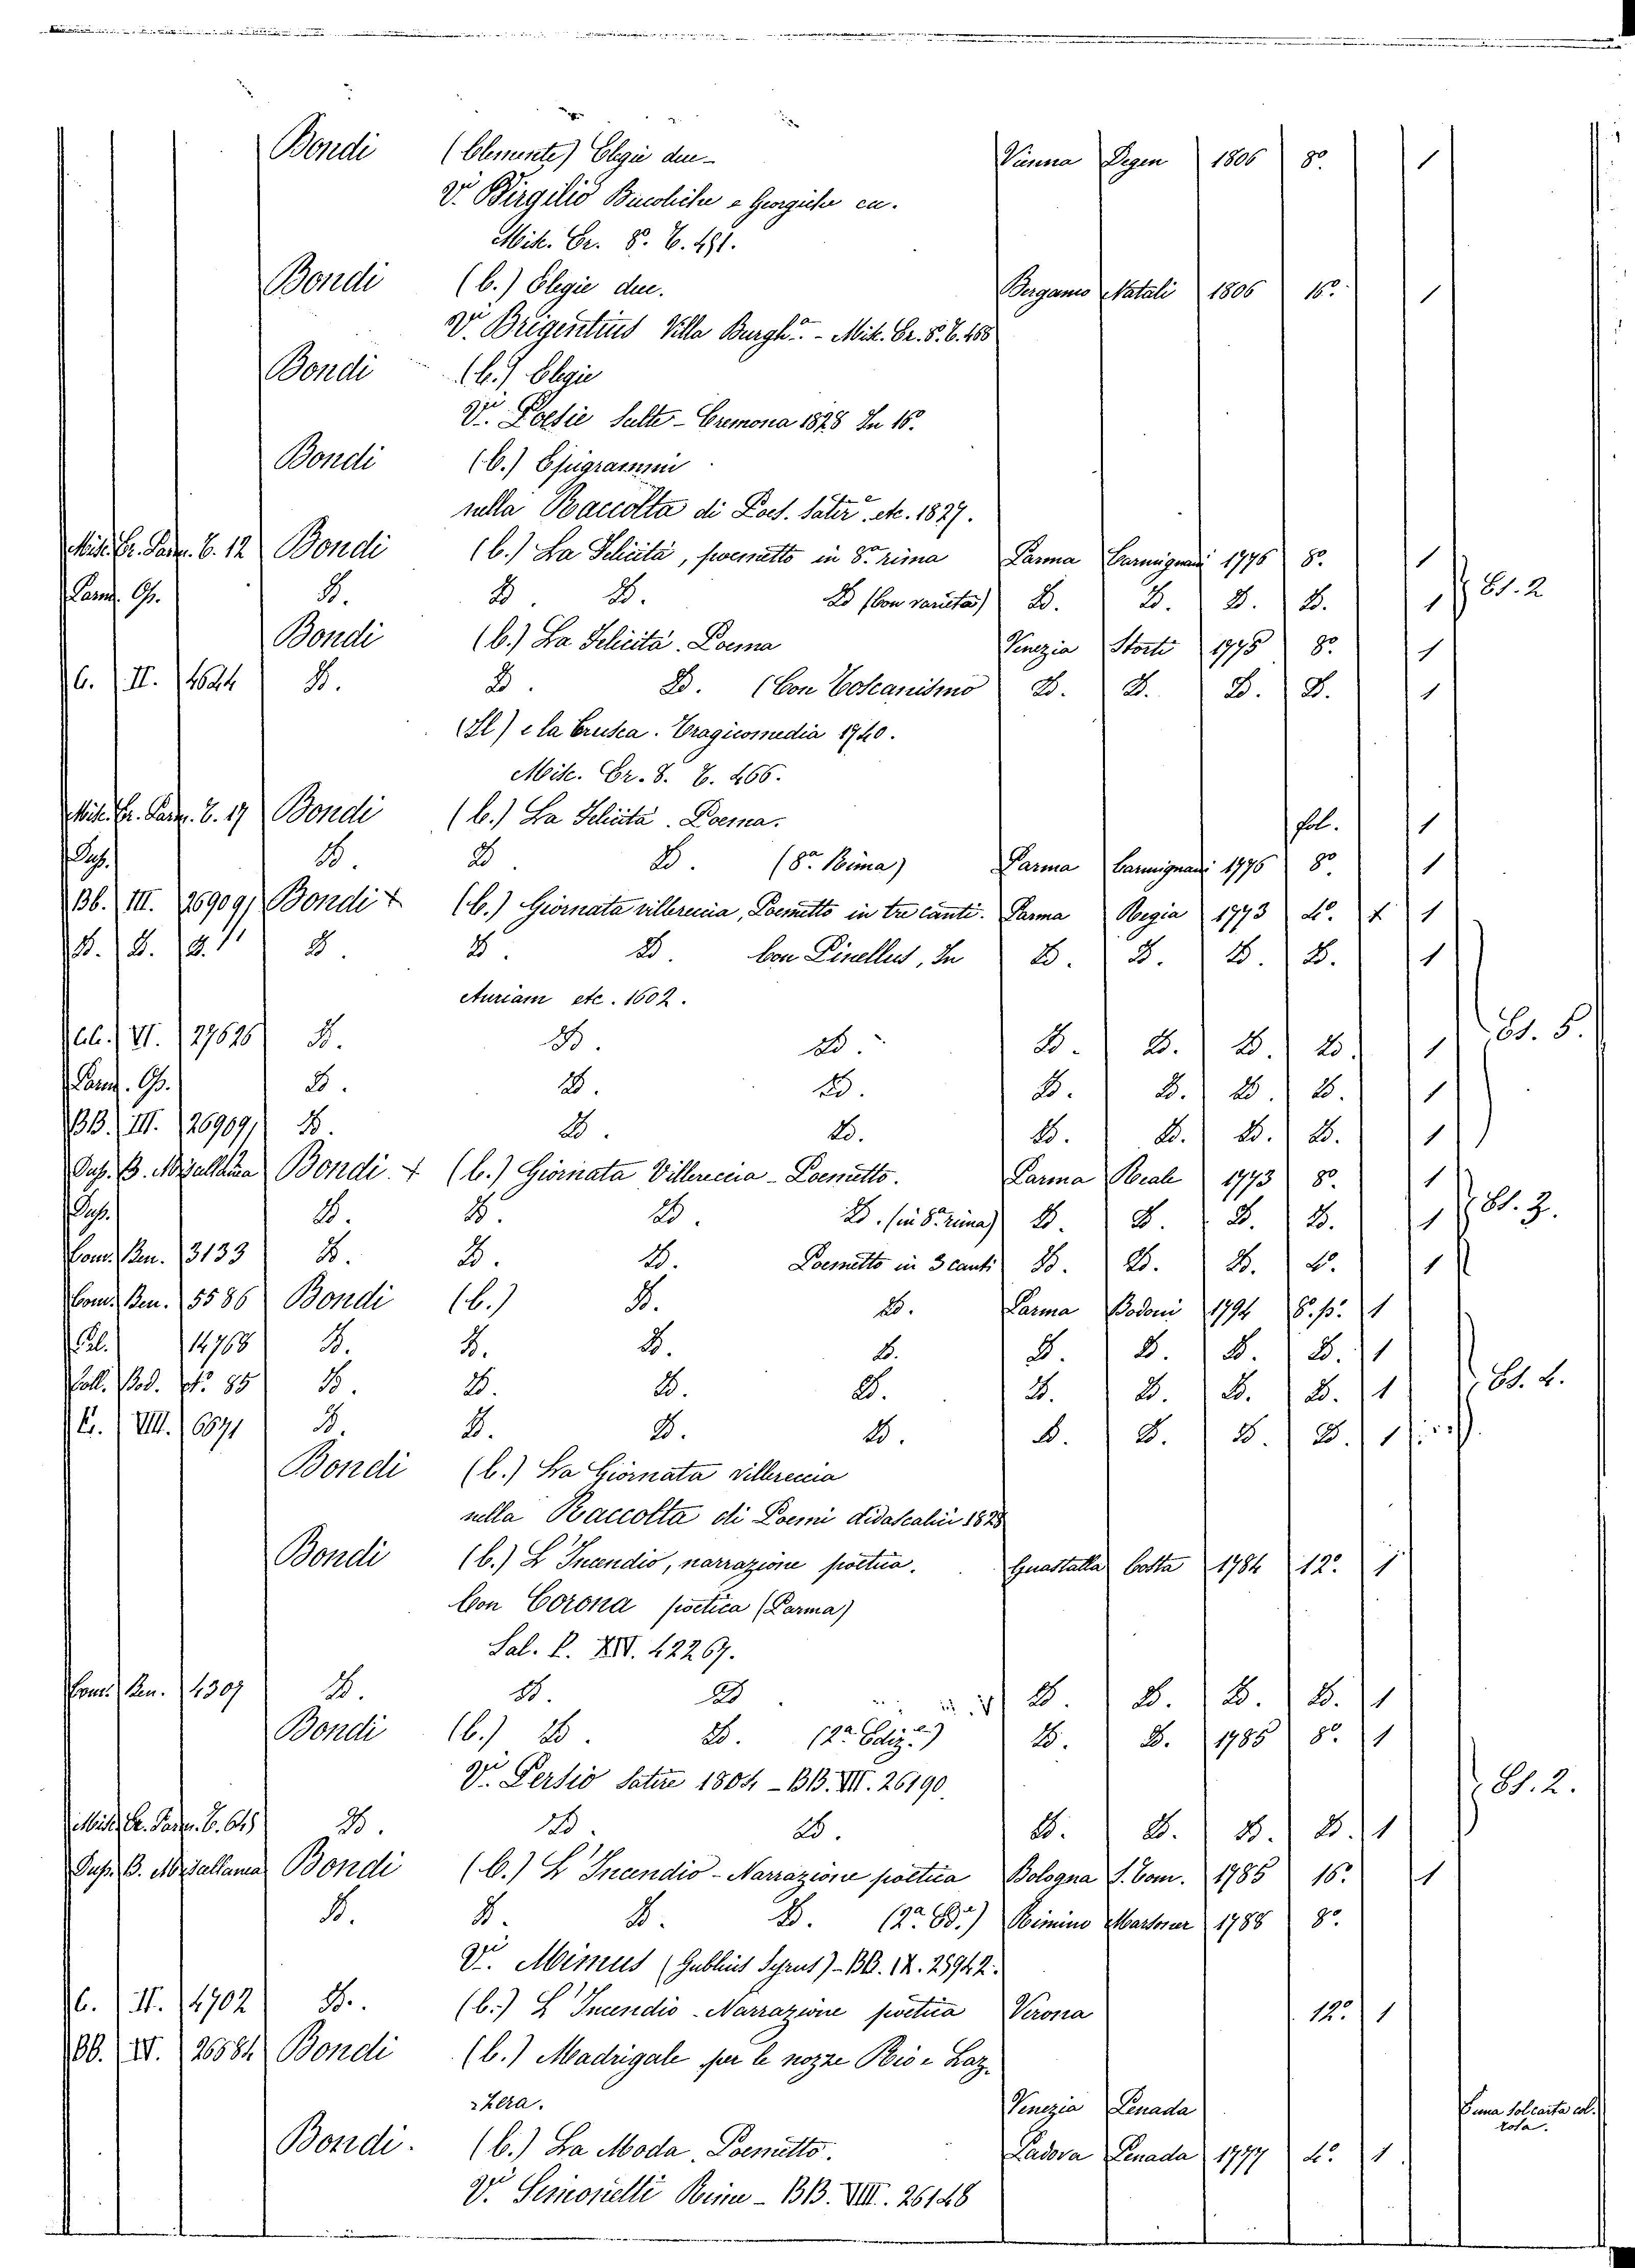 Bondi (Clemente) Elegie due- Vienna Degen 1806 8º. 1
Vi. Virgilio Bucoliche e Georgiche ec.
Misc. Er. 8. T. 491.
Bondi (C.) Elegie due. Bergamo Natali 1806 16º. 1
Vi. Brigentius Villa Burghª. - Misc. Er. 8. T. 468
Bondi (C.) Elegie
Vi. Poesie Scelte - Cremona 1828 In 16.
Bondi (C.) Epigrammi
nella Raccolta di Poes. Satirᵉ. etc. 1827.
Misc. Er. Parm. T. 12 Bondi (C.) La Felicità, poemetto in 8ª rima Parma Carmignani 1776 8º. 1
Parm. Op. D. D. D. D (Con varietà) D. D. D. D. 1 Es. 2
Bondi (C.) La Felicità. Poema Venezia Storti 1775 8º. 1
C. II. 4644 D. D. D. (Con Toscanismo D. D. D. D. 1
(Il) e la Crusca. Tragicomedia 1740.
Misc. Er. 8. T. 466.
Misc. Er. Parm. T. 17 Bondi (C.) La Felicità. Poema. fol. 1
Dup. D. D D. (8ª Rima) Parma Carmignani 1776 8º 1
BB. III. 26909/ Bondi + (C.) Giornata villereccia, Poemetto in tre canti. Parma Regia 1773 4º. + 1
D. D. D. 11 D. D. D. Con Pinellus, In D. D. D. D. 1
Auriam etc. 1602.
VI. 27626 D. D. D. D. D. D. D. 1 Es. 5.
Parm. Op. D. D. D. D. D. D. D. 1
BB. III. 26909/ D. D. D. D. D. D. D. 1
Dup. B. Miscellanea Bondi. + (C.) Giornata Villereccia - Poemetto. Parma Reale 1773 8º. 1
Dup. D. D. D. D. (in 8ª rima) D. D. D. D. 1 Es. 3.
Com. Ben. 3133 D. D. D. Poemetto in 3 canti D. D. D. 4º. 1
Com. Ben. 5586 Bondi (C.) D. D. Parma Bodoni 1794 8. p. 1
Pal. 14768 D. D. D. D. D. D. D. D. 1
Coll. Bod. Nº. 85 D. D. D. D. D. D. D. D. 1 Es. 4.
E. VIII. 6691 D. D. D. D. D. D. D. D. 1
Bondi (C.) La Giornata villereccia
nella Raccolta di Poemi didascalici 1828
Bondi (C.) L'Incendio, narrazione poetica. Guastalla Costa 1784 12º. 1
Con Corona poetica (Parma)
Sal. P. XIV. 42267.
Com. Ben. 4307 D. D. D D. D. D. D. 1
Bondi (C.) D. D. (2ª Edizᵉ.) D. D. 1785 8º. 1
Vi. Persio Satire 1804 - BB. VII. 26190.
Misc. Er. Parm. T. 645 D. D. D. D. D. D. D. 1 Es. 2.
Dup. B. Miscellanea Bondi (C.) L'Incendio - Narrazione poetica Bologna S. Tom. 1785 16º. 1
D. D. D. D. (2ª Edᵉ.) Rimino Marsoner 1788 8º.
Vi. Mimus (Publius Syrus) - BB. IX. 25942.
C. II. 4702 D. (C.) L'Incendio - Narrazione poetica Verona 12º. 1
BB. IV. 26584 Bondi (C.) Madrigale per le nozze Rio e Laz-
zara. Venezia Penada È una sol carta col.
rosa.
Bondi. (C.) La Moda. Poemetto. Padova Penada 1777 4º. 1
Vi. Simonetti Rime - BB. VIII. 26148